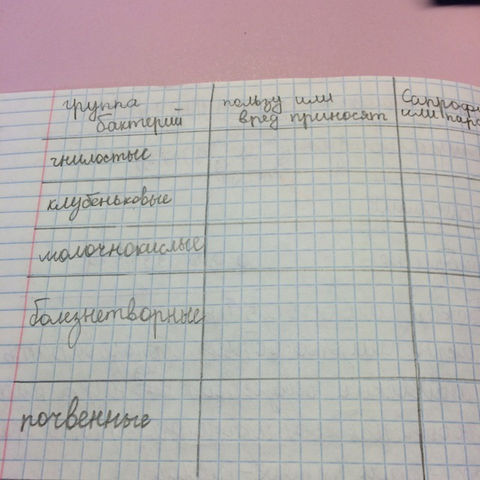 группа
бактерий
пользу или
вред приносят
или
гнилостые
клубеньковые
молочнокислые
болезнетворные
почвенные